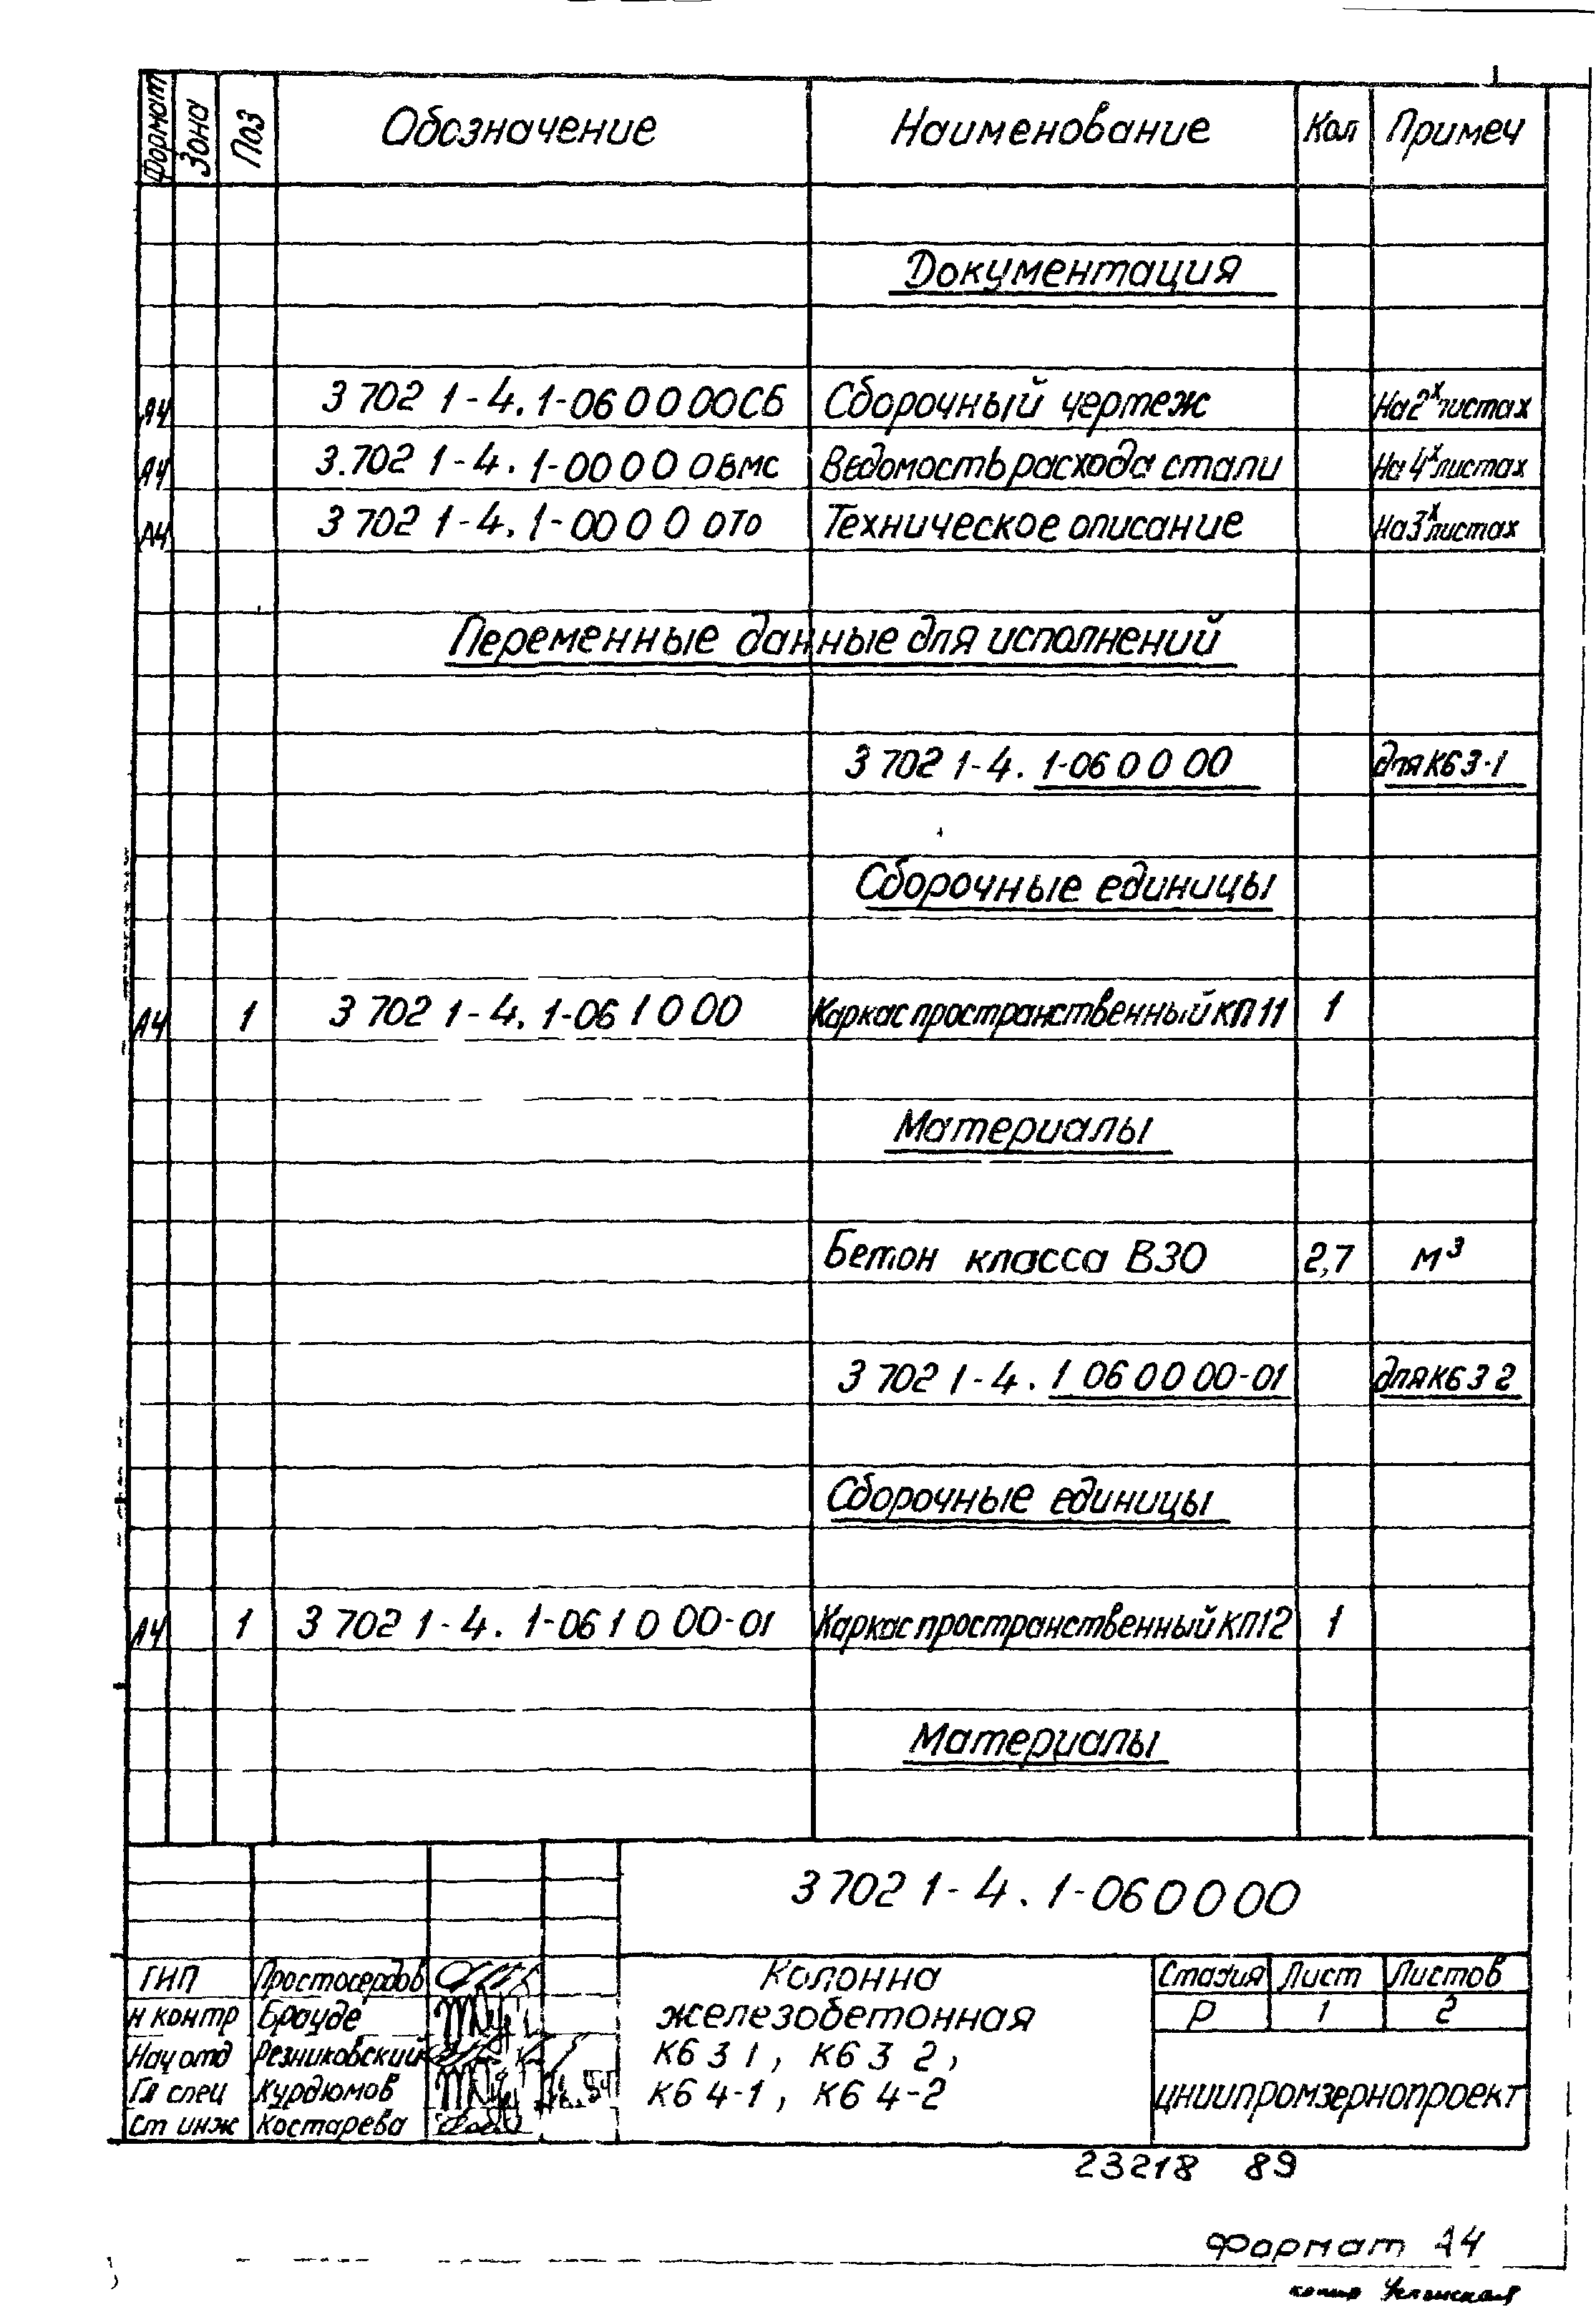 Формат Зона Поз Обозначение Наименование Кол Примеч
Документация
А4 3 702 1-4. 1-06 0 0 00СБ Сборочный чертеж На 2х листах
А4 3.702 1-4. 1-00 0 0 0ВМС Ведомость расхода стали На 4х листах
А4 3 702 1-4. 1-00 0 0 0ТО Техническое описание На 3х листах
Переменные данные для исполнений
3 702 1-4. 1-06 0 0 00 для К6 3-1
Сборочные единицы
А4 1 3 702 1-4. 1-06 1 0 00 Каркас пространственный КП 11 1
Материалы
Бетон класса В30 2,7 м³
3 702 1-4. 1 06 0 0 00-01 для К6 3 2
Сборочные единицы
А4 1 3 702 1-4. 1-06 1 0 00-01 Каркас пространственный КП12 1
Материалы
3 702 1-4. 1-06 0 0 00
ГИП Простосердов
Н контр Брауде
Нач отд Резниковский
Гл спец Курдюмов
Ст инж Костарева
Колонна
железобетонная
К6 3 1, К6 3 2,
К6 4-1, К6 4-2
Стадия Лист Листов
Р 1 2
ЦНИИПРОМЗЕРНОПРОЕКТ
23218 89
Формат А4